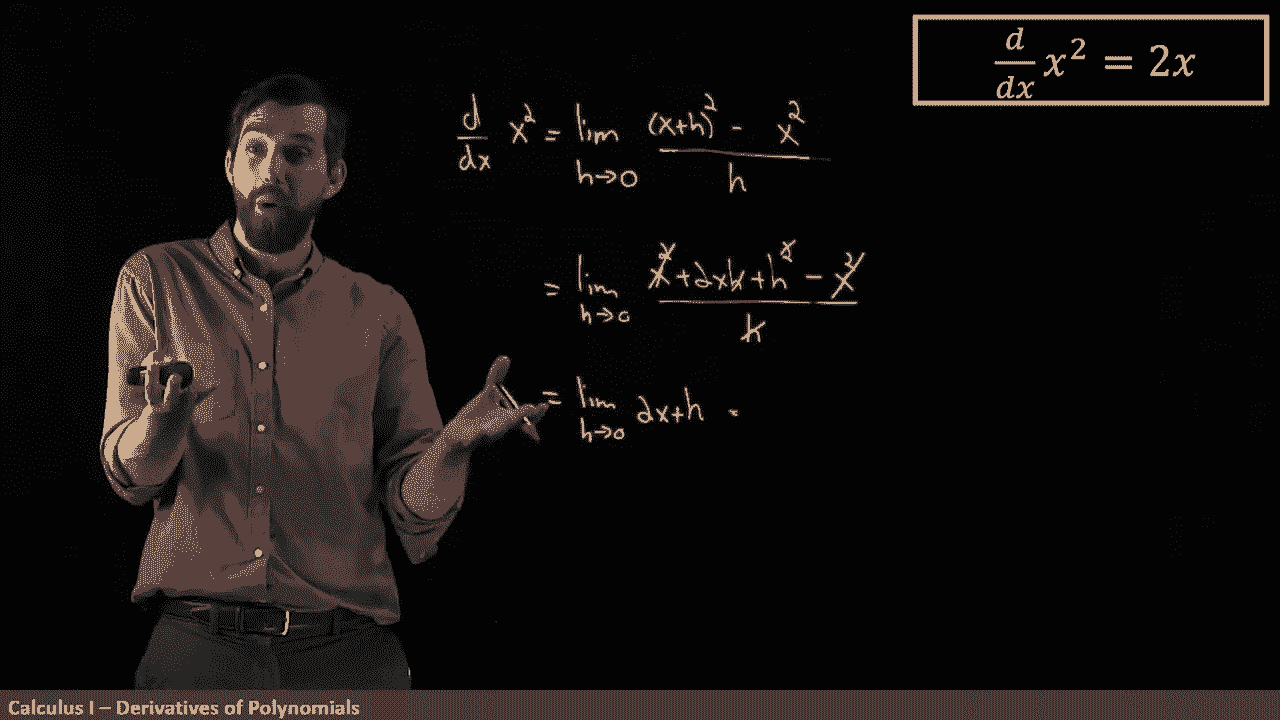 d/dx x² = 2x
d/dx x² = lim h→0 (x+h)² - x² / h
= lim h→0 x² + 2xh + h² - x² / h
= lim h→0 2x+h =
Calculus I – Derivatives of Polynomials